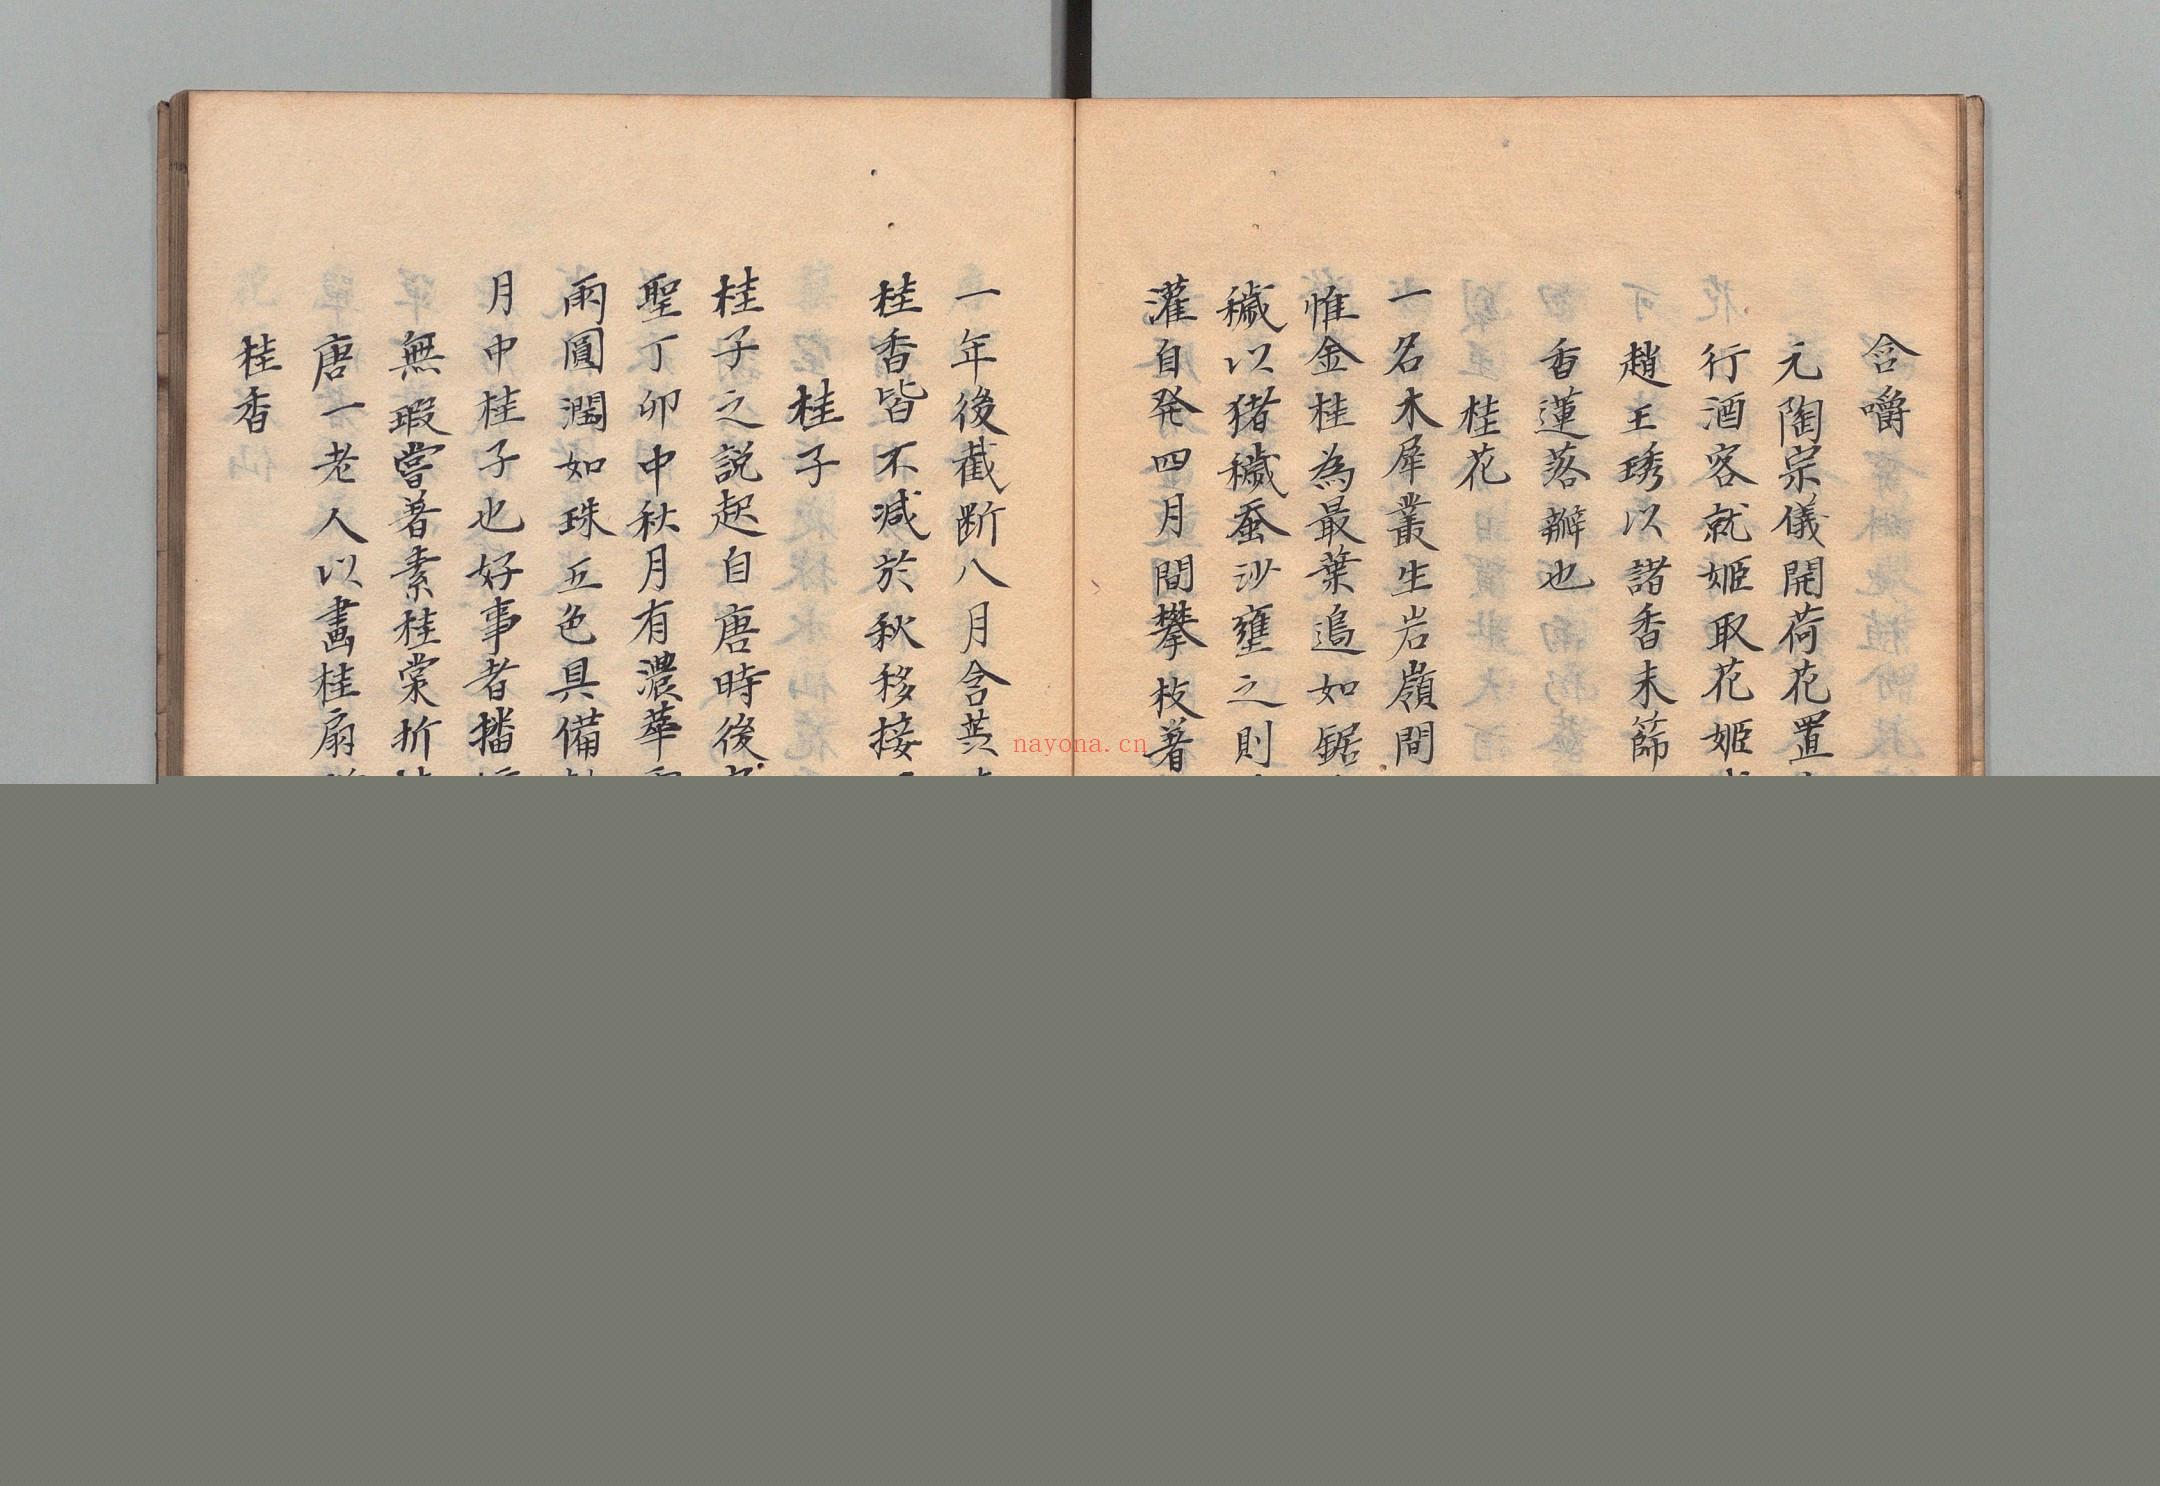 含嚼
元陶宗儀開荷花置
行酒客就姬取花姬
趙王琇以諸香末篩
香蓮落瓣也
桂花
一名木犀叢生岩嶺間
惟金桂為最葉邉如鋸
穢以猪穢蚕沙壅之則
灌自発四月間攀枝著
一年後截断八月含蕋
桂香皆不減於秋移接
桂子
桂子之説起自唐時後
聖丁卯中秋月有濃華
雨圓潤如珠五色具備
月中桂子也好事者播
無瑕嘗著素桂棠折
唐一老人以畫桂扇
桂香
nayona.cn